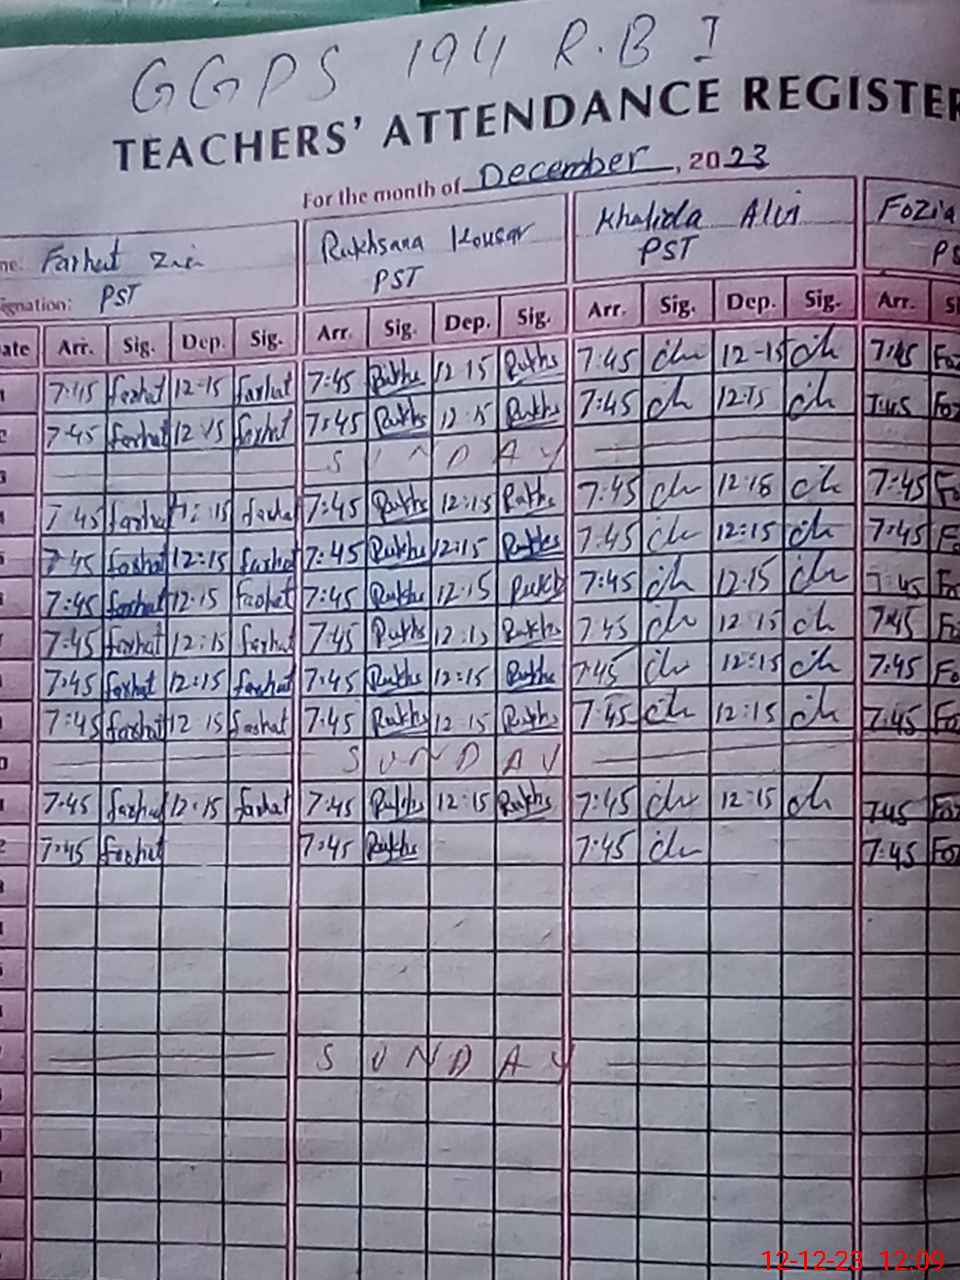 GGPS 194 R.B I
TEACHERS' ATTENDANCE REGISTER
For the month of December, 2023
Farhat Zia Rukhsana Kousar Khalida Alvi Fozia
PST PST PST PS
Arr. Sig. Dep. Sig. Arr. Sig. Dep. Sig. Arr. Sig. Dep. Sig. Arr.
7:45 farhat 12:15 farhat 7:45 Rukhs 12:15 Rukhs 7:45 ch 12-15 ch 7:45 Foz
7:45 farhat 12:15 farhat 7:45 Rukhs 12:15 Rukhs 7:45 ch 12:15 ch 7:45 Foz
SUNDAY
7:45 farhat 12:15 farhat 7:45 Rukhs 12:15 Rukhs 7:45 ch 12:15 ch 7:45 Fo
7:45 farhat 12:15 farhat 7:45 Rukhs 12:15 Rukhs 7:45 ch 12:15 ch 7:45 Fo
7:45 farhat 12:15 Farhat 7:45 Rukhs 12:15 Rukh 7:45 ch 12:15 ch 7:45 Fo
7:45 farhat 12:15 farhat 7:45 Rukhs 12:15 Rukhs 7:45 ch 12:15 ch 7:45 Fo
7:45 farhat 12:15 farhat 7:45 Rukhs 12:15 Rukhs 7:45 ch 12:15 ch 7:45 Fo
7:45 farhat 12:15 farhat 7:45 Rukhs 12:15 Rukhs 7:45 ch 12:15 ch 7:45 Fo
SUNDAY
7:45 farhat 12:15 farhat 7:45 Rukhs 12:15 Rukhs 7:45 ch 12:15 ch 7:45 Foz
7:45 farhat 7:45 Rukhs 7:45 ch 7:45 Foz
SUNDAY
12-12-23 12:09